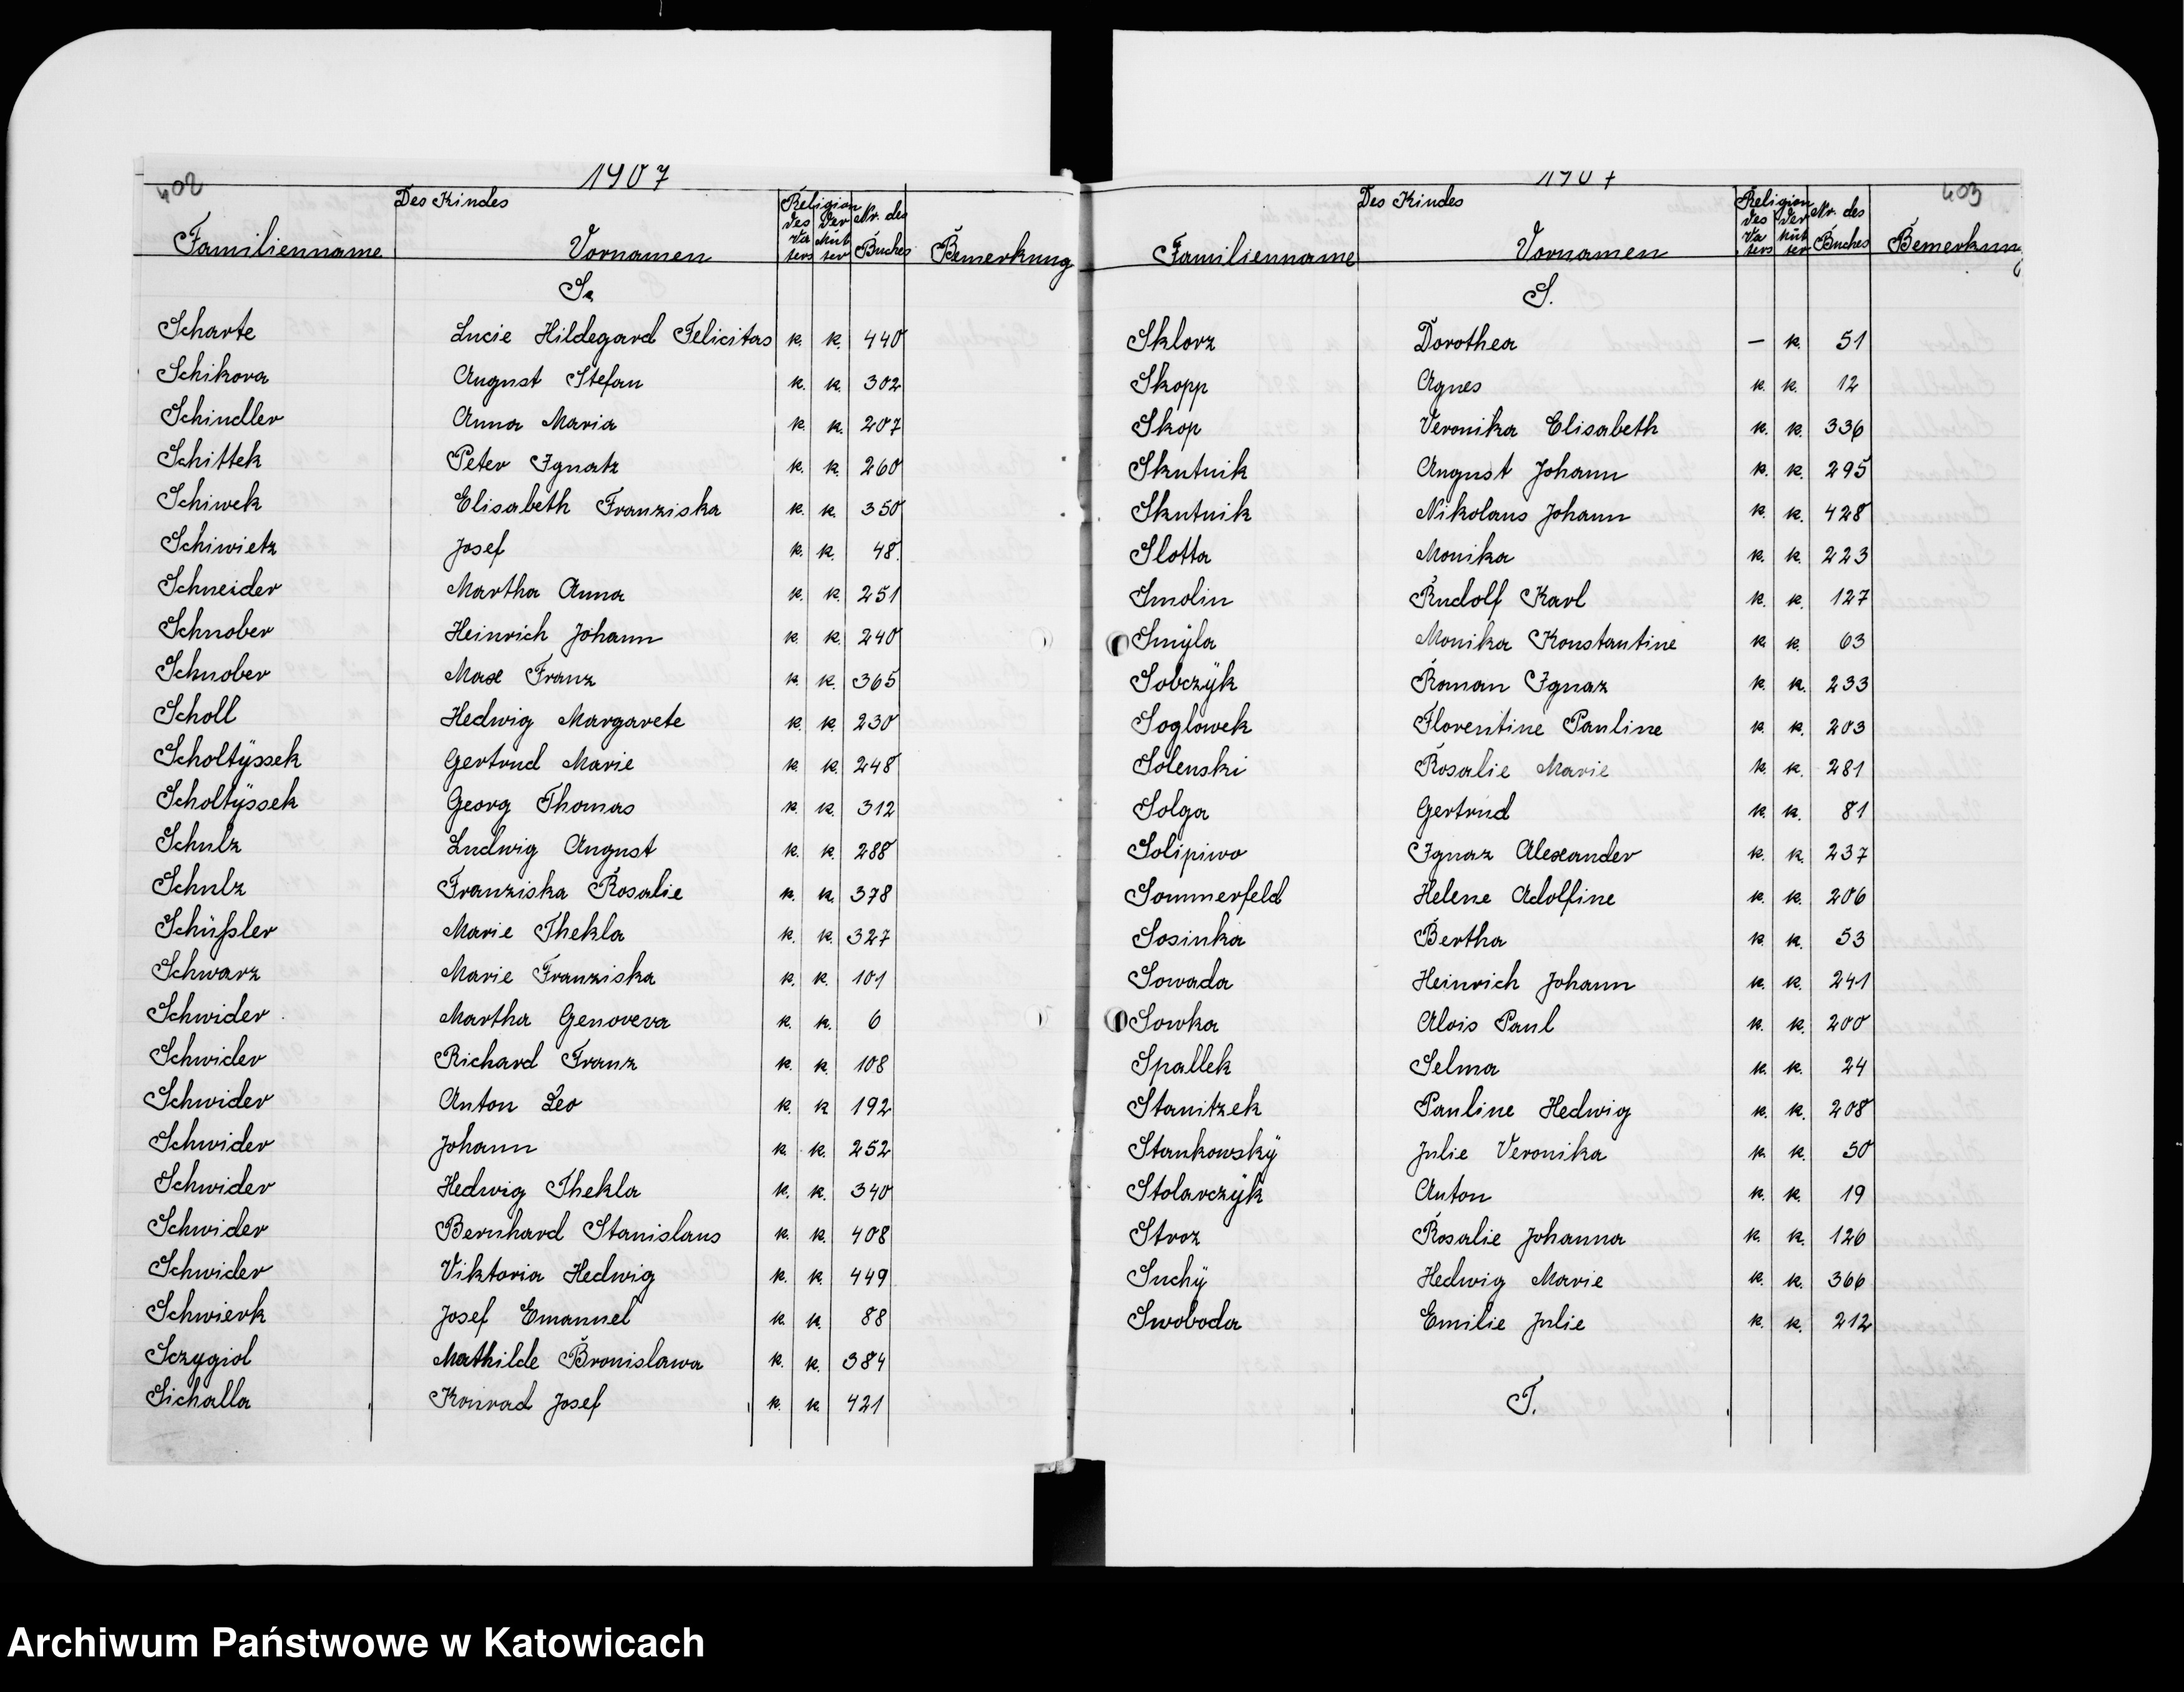 402
1907
Des Kindes Religion Nr. des
Familienname Vornamen des Vaters der Mutter Buches Bemerkung
S.
Scharte Lucie Hildegard Felicitas k. k. 440
Schikora August Stefan k. k. 302
Schindler Anna Maria k. k. 207
Schittek Peter Ignatz k. k. 260
Schiwek Elisabeth Franziska k. k. 350
Schiwietz Josef k. k. 48.
Schneider Martha Anna k. k. 251
Schnober Heinrich Johann k k. 240
Schnober Max Franz k. k. 365
Scholl Hedwig Margarete k. k. 230
Scholtÿssek Gertrud Marie k. k. 248
Scholtÿssek Georg Thomas k. k. 312
Schulz Ludwig August k. k. 288
Schulz Franziska Rosalie k. k. 378
Schüßler Marie Thekla k. k. 327
Schwarz Marie Franziska k. k. 101
Schwider Martha Genoveva k. k. 6
Schwider Richard Franz k. k. 108
Schwider Anton Leo k. k 192
Schwider Johann k k. 252
Schwider Hedwig Thekla k. k. 340
Schwider Bernhard Stanislaus k. k. 408
Schwider Viktoria Hedwig k. k. 449
Schwierk Josef Emanuel k. k. 88
Sczygiol Mathilde Bronislawa k. k. 384
Sichalla Konrad Josef k. k. 421
1907
403
Des Kindes Religion Nr. des
Familienname Vornamen des Vaters der Mutter Buches Bemerkung
S.
Sklorz Dorothea – k. 51
Skopp Agnes k. k. 12
Skop Veronika Elisabeth k. k. 336
Skutnik August Johann k. k. 295
Skutnik Nikolaus Johann k. k. 428
Slotta Monika k. k. 223
Smolin Rudolf Karl k. k. 127
Smÿla Monika Konstantine k k. 63
Sobczÿk Roman Ignaz k. k. 233
Soglowek Florentine Pauline k. k. 203
Solenski Rosalie Marie k. k. 281
Solga Gertrud k k. 81
Solipiwo Ignaz Alexander k. k. 237
Sommerfeld Helene Adolfine k. k. 206
Sosinka Bertha k. k. 53
Sowada Heinrich Johann k. k. 241
Sowka Alois Paul k. k. 200
Spallek Selma k. k. 24
Stanitzek Pauline Hedwig k. k. 208
Stankowskÿ Julie Veronika k k. 50
Stolarczÿk Anton k. k. 19
Stroz Rosalie Johanna k. k. 126
Suchÿ Hedwig Marie k. k. 366
Swoboda Emilie Julie k. k. 212
T.
Archiwum Państwowe w Katowicach